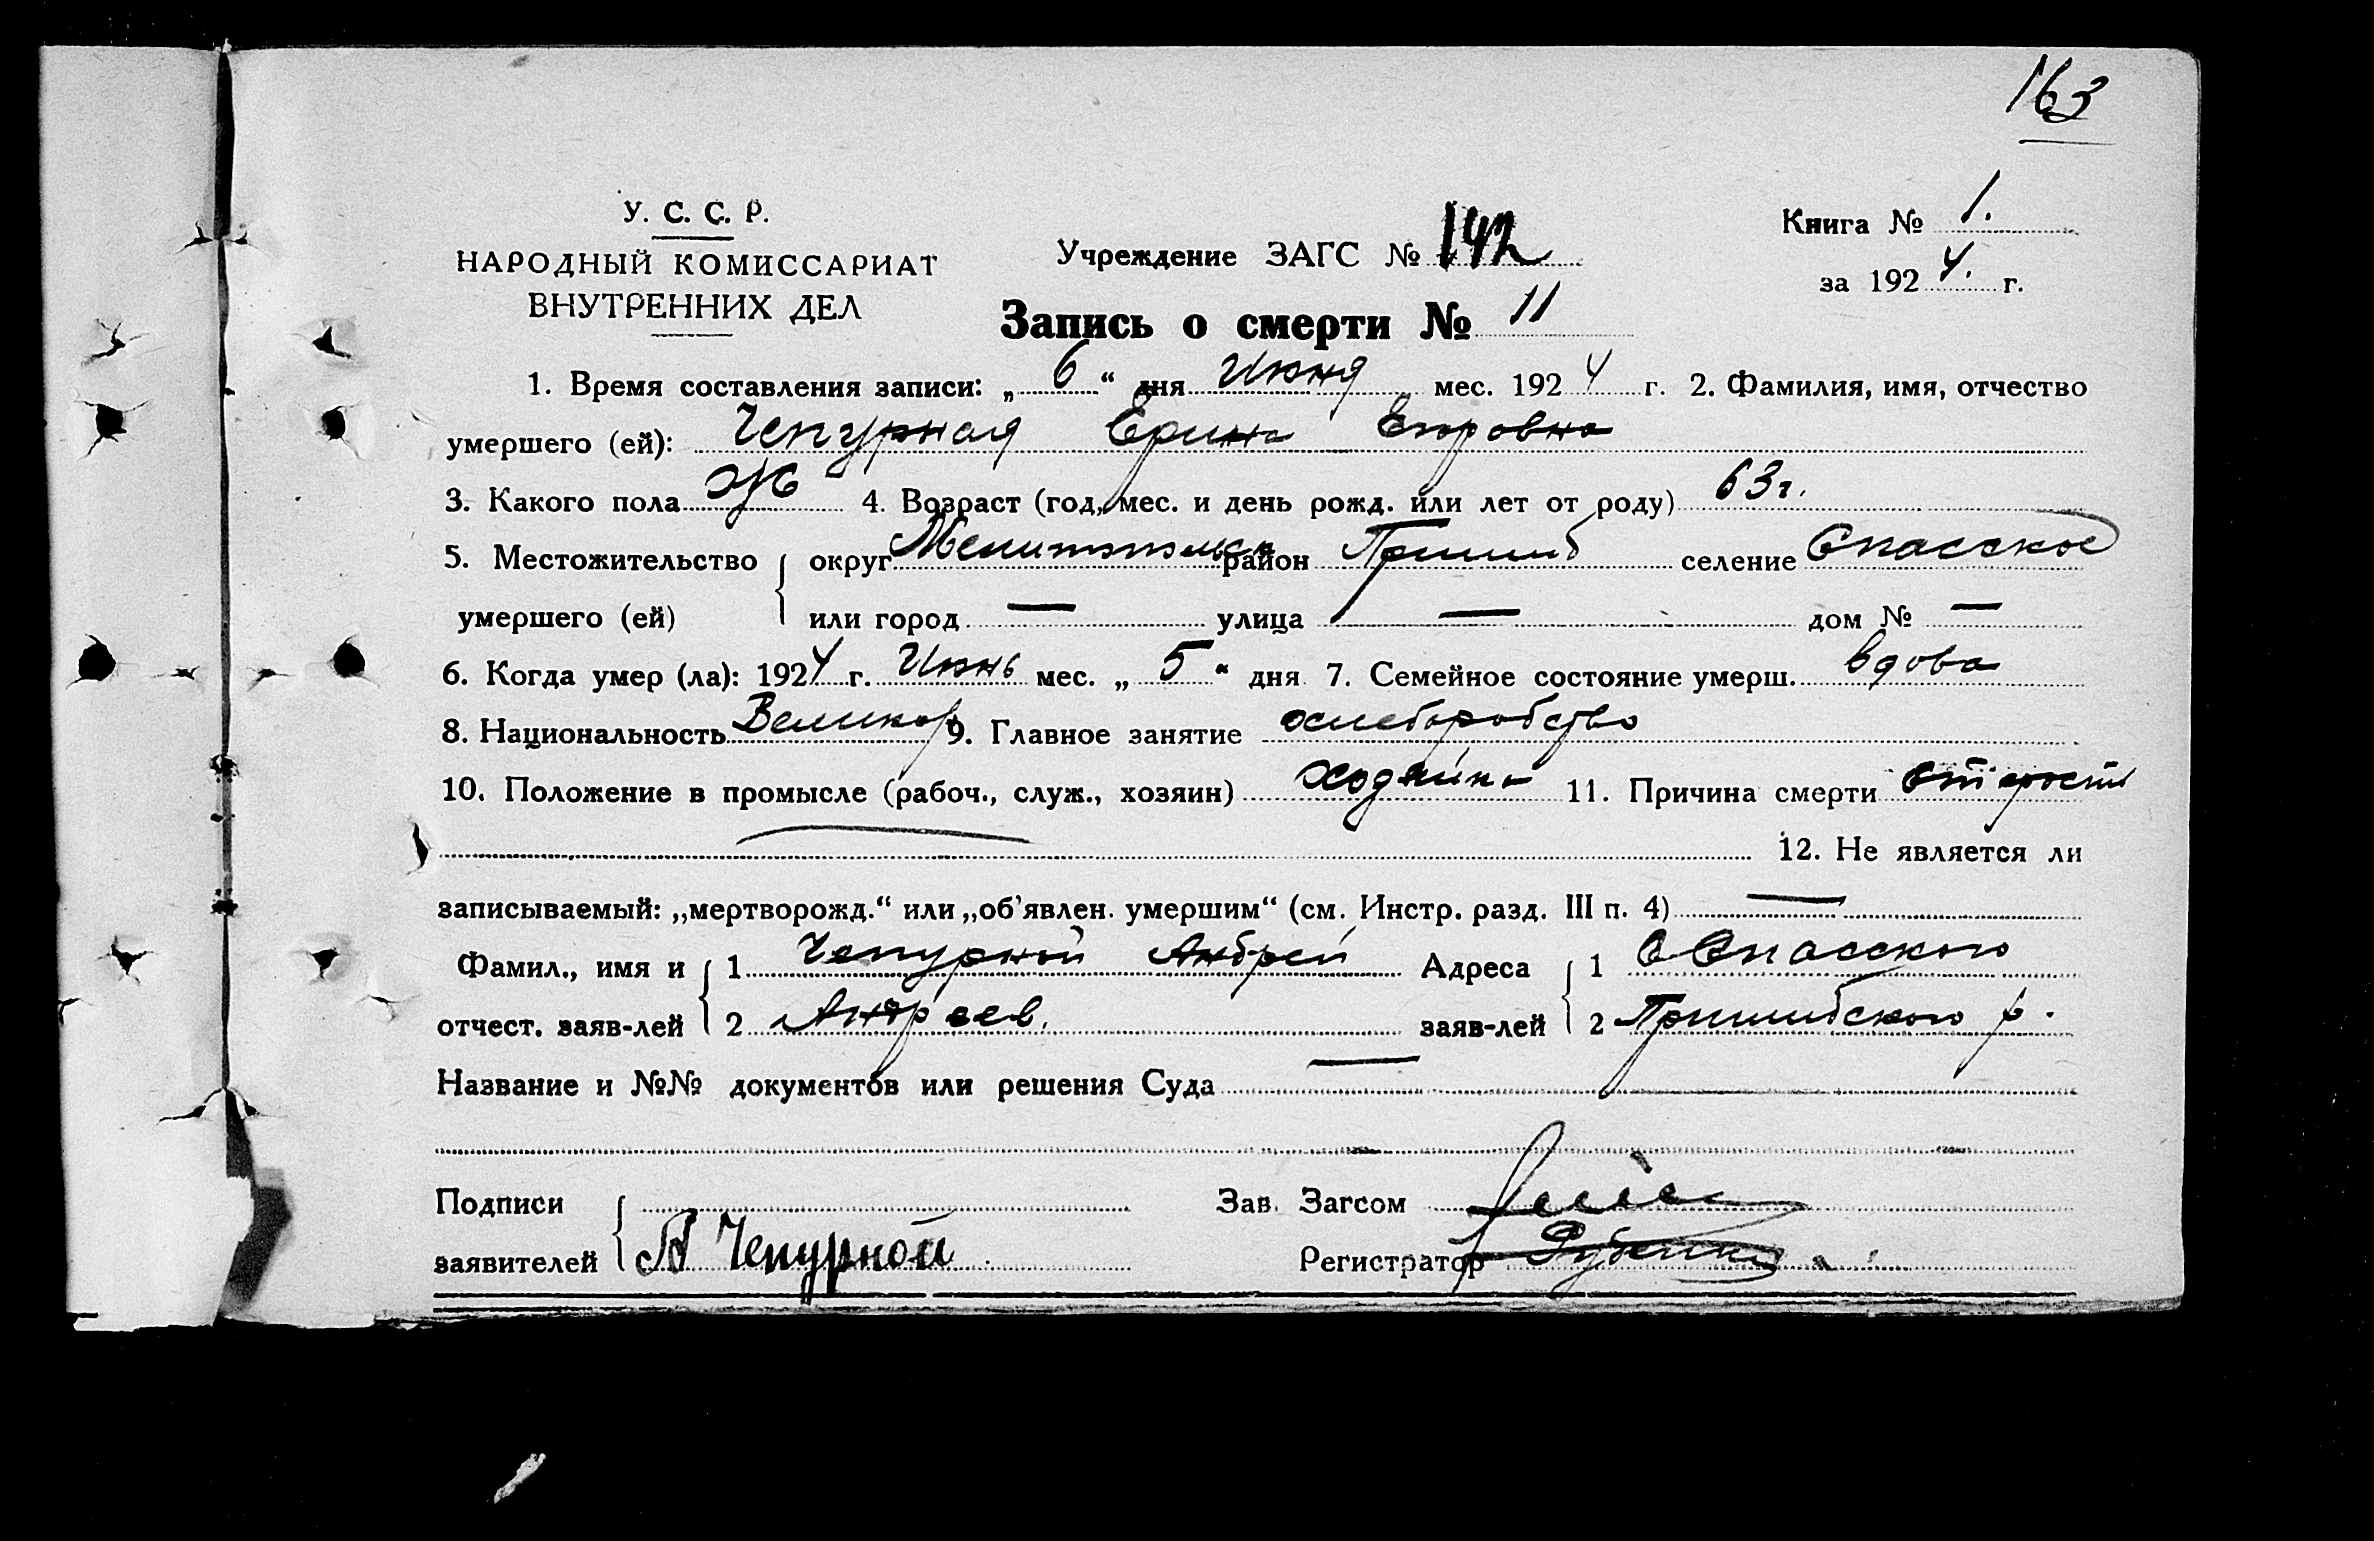 163
У. С. С. Р.
НАРОДНЫЙ КОМИССАРИАТ
ВНУТРЕННИХ ДЕЛ
Учреждение ЗАГС № 142
Книга № 1.
за 1924. г.
Запись о смерти № 11
1. Время составления записи: „6“ дня Июня мес. 1924 г. 2. Фамилия, имя, отчество
умершего (ей): Чепурная Ерина Егоровна
3. Какого пола Ж 4. Возраст (год, мес. и день рожд. или лет от роду) 63 г.
5. Местожительство округ район Пришиб селение Спасское
умершего (ей) или город — улица — дом № —
6. Когда умер (ла): 1924 г. Июнь мес. „5“ дня 7. Семейное состояние умерш. вдова
8. Национальность Великор 9. Главное занятие хлеборобство
10. Положение в промысле (рабоч., служ., хозяин) 11. Причина смерти
12. Не является ли
записываемый: „мертворожд.“ или „об'явлен. умершим“ (см. Инстр. разд. III п. 4) —
Фамил., имя и 1 Чепурной Андрей Адреса 1 С Спасского
отчест. заяв-лей 2 Андреев. заяв-лей 2 Пришибского р.
Название и №№ документов или решения Суда —
Подписи Зав. Загсом
заявителей А Чепурной Регистратор